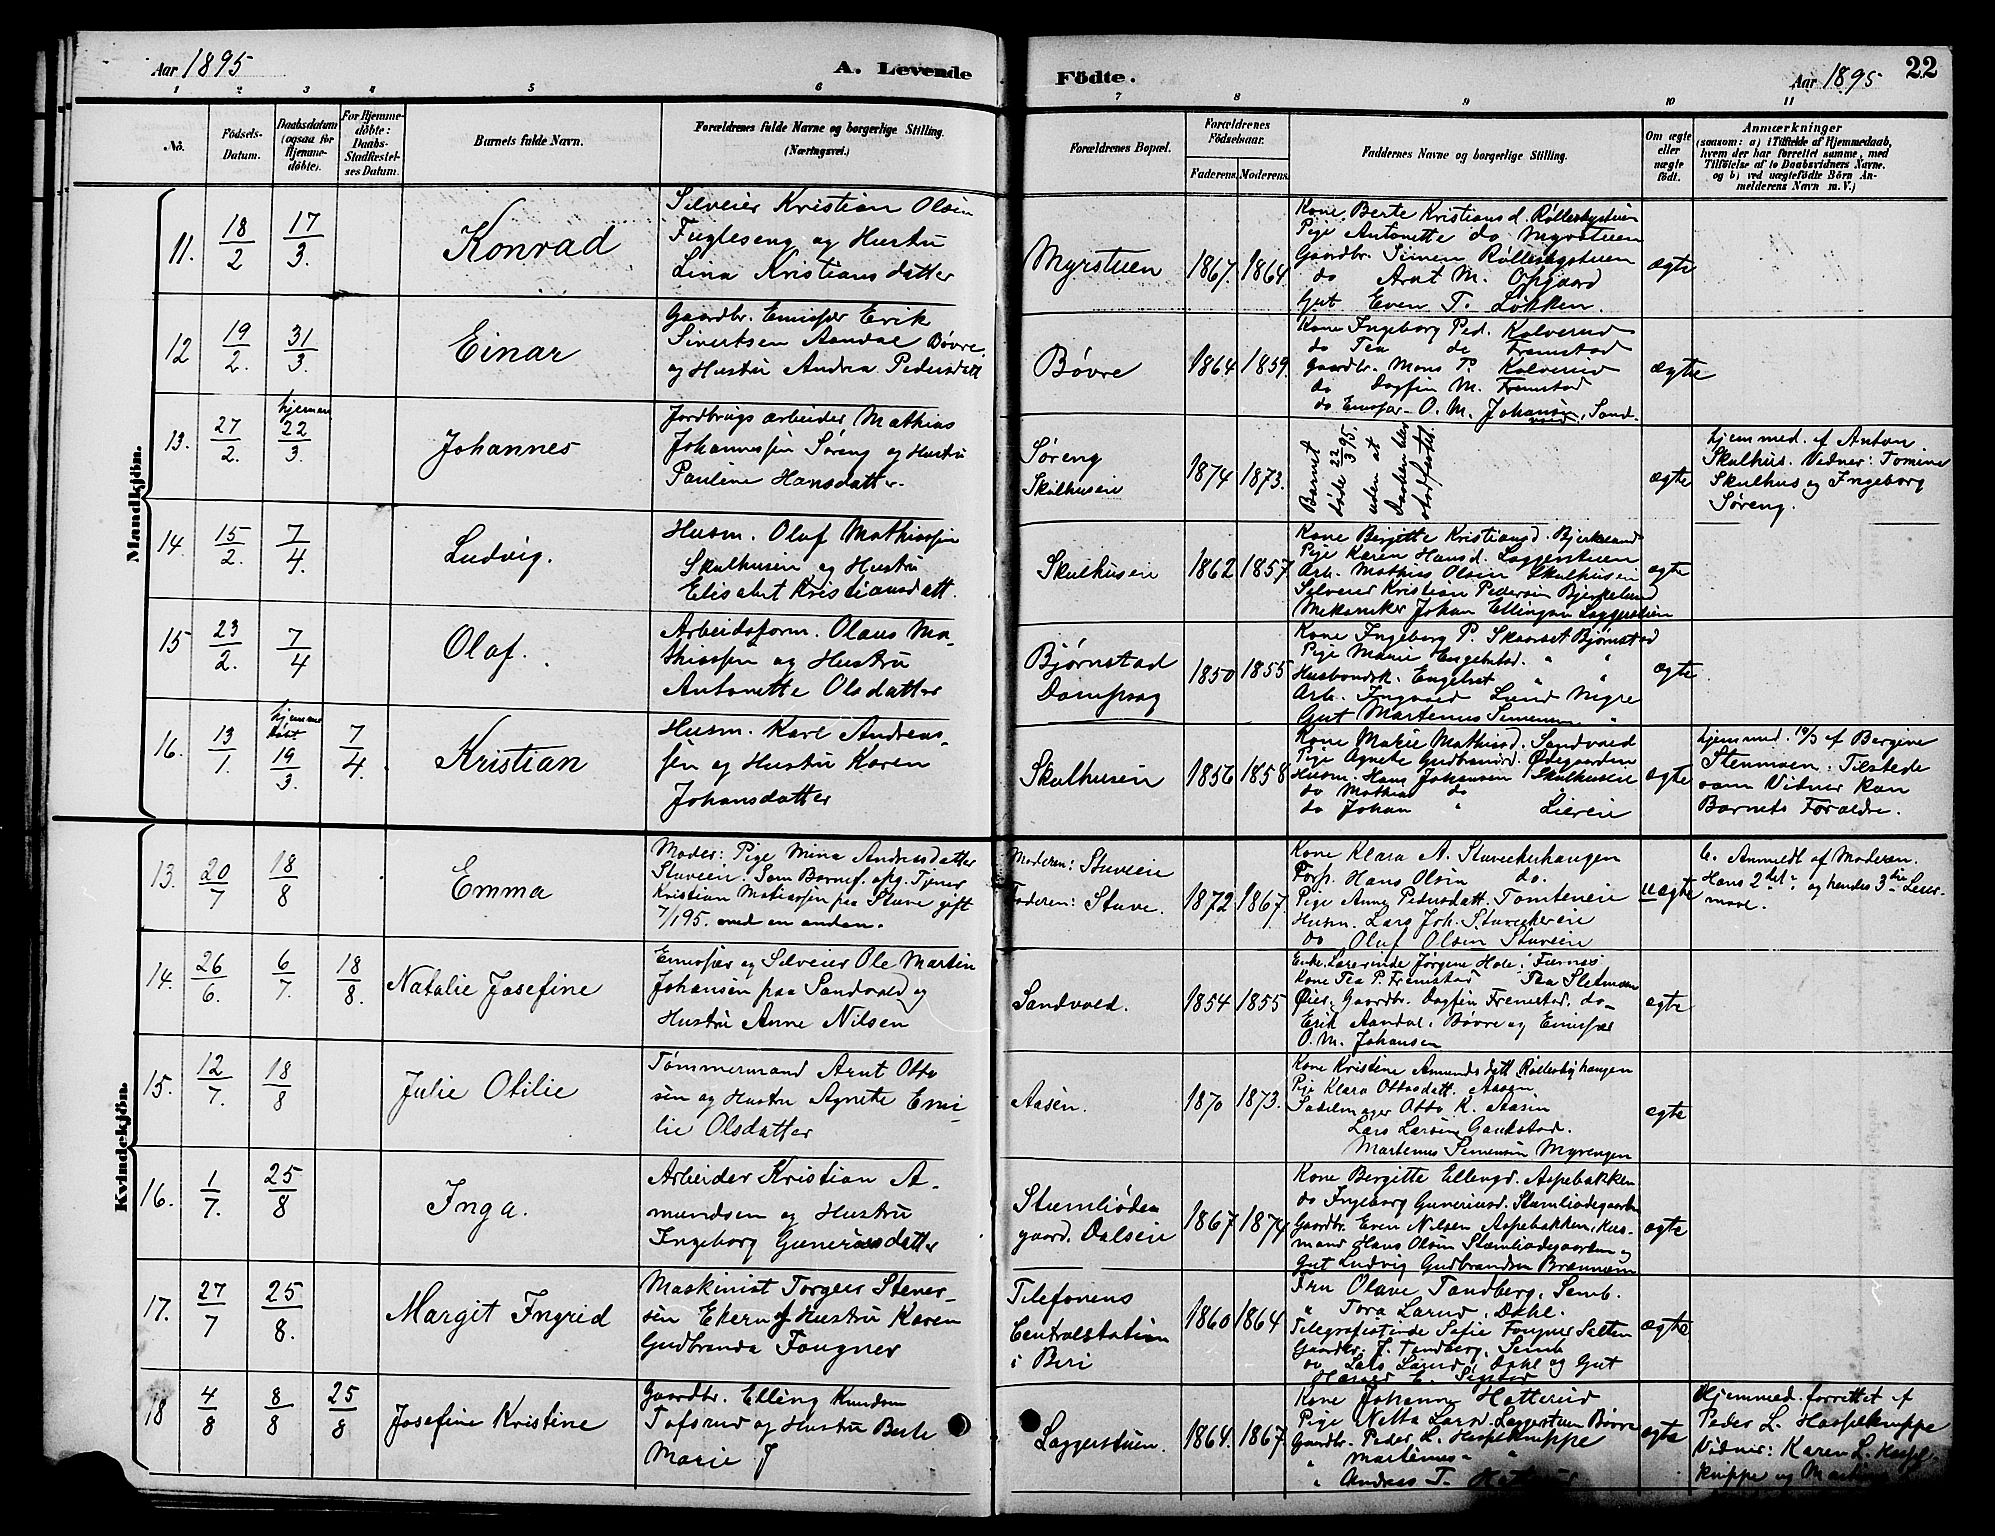 Aar 1895
A. Levende
Födte.
Aar 1895
22
1 2 3 4 5 6 7 8 9 10 11
No.
Födsels-
Datum.
Daabsdatum
(ogsaa for
Hjemme-
döbte).
For Hjemme-
döbte:
Daabs-
Stadfæstel-
ses Datum.
Barnets fulde Navn.
Forældrenes fulde Navne og borgerlige Stilling.
(Næringsvei.)
Forældrenes Bopæl.
Forældrenes
Födselsaar.
Faderens. Moderens.
Faddernes Navne og borgerlige Stilling.
Om ægte
eller
uægte
födt.
Anmærkninger
(saasom: a) i Tilfælde af Hjemmedaab,
hvem der har forrettet samme, med
Tilföielse af to Daabsvidners Navne.
og b) ved uægtefödte Börn An-
melderens Navn m. V.)
Mandkjön.
11. 18/2 17/3. Konrad
Selveier Kristian Olsen
Fugleseng og Hustru
Lina Kristiansdatter
Myrstuen 1867. 1864.
Kone Berte Kristiansd. Røllesbystuen
Pige Antonette do Myrstuen
Gaardbr. Simen Røllesbystuen
do Arnt M. Opgaard
Gut Even T. Løkken.
ægte
12 19/2. 31/3. Einar
Gaardbr. Emissær Erik
Sivertsen Aandal Bøvre.
og Hustru Andrea Pedersdatt
Bøvre 1864 1859.
Kone Ingeborg Ped. Kalverud
do Tea do Fremstad
Gaardbr. Mons P. Kalverud
do Dagfin M. Fremstad
do Emissær O. M. Johansen, Sand-
vold.
ægte
13. 27/2. hjemme 22/3 Johannes
Jordbrugsarbeider Mathias
Johannessen Søreng og Hustru
Pauline Hansdatter.
Søreng
Skulhuseie
1874 1873.
Barnet
døde 22/3 95.
uden at
Daaben blev
stadfæstet.
ægte
hjemmed. af Anton
Skulhus. Vidner: Tomine
Skulhus og Ingeborg
Søreng.
14. 15/2. 7/4. Ludvig.
Husm. Olaf Mathiassen
Skulhuseie og Hustru
Elisabet Kristiansdatt.
Skulhuseie 1862 1857.
Kone Birgitte Kristiansd. Bjerkelund
Pige Karen Hansd. Laggerstuen
Arb. Mathias Olsen Skulhuseie
Selveier Kristian Pedersen Bjerkelund
Mekaniker Johan Ellingsen Laggerstuen
ægte
15 23/2. 7/4 Olaf.
Arbeidsform. Olaus Ma-
thiassen og Hustru
Antonette Olsdatter
Bjørnstad
Dampsag
1850 1855
Kone Ingeborg P. Skaaret Bjørnstad
Pige Marie Engebretsd. " "
Husbondsk. Engebret " "
Arb. Ingvald Lund
Gut Martenius Simensen "
ægte
16. 13/1. hjemme døbt 19/3 7/4. Kristian
Husm. Karl Andreas-
sen og Hustru Karen
Johansdatter
Skulhuseie 1856 1858
Kone Marie Mathisd. Sandvold
Pige Agnete Gudbrandsd. Ødegaarden
Husm. Hans Johansen Skulhuseie
do Mathias do
do Johan " Liereie
ægte
hjemmed. 19/3 af Bergine
Stenmoen: Tilstede
som Vidner kun
Barnets Forældre.
Kvindekjön.
13. 20/7 18/8 Emma
Moder: Pige Mina Andreasdatter
Stuveie. Som Barnef. opg. Tjener
Kristian Matiassen paa Stuve gift
7/1 95. med en anden.
Moderen: Stuveie
Faderen: Stuve.
1872 1867.
Kone Klara A. Stuvekerhaugen
Forp. Hans Olsen do.
Pige Anne Pedersdatt. Tomteneie
Husm. Lars Joh. Stuvekereie
do Oluf Olsen Stuveie
uægte
6. Anmeldt af Moderen.
Hans 2det og hendes 3die Leier-
maal.
14. 26/6. 6/7. 18/8. Natalie Josefine
Emissær og Selveier Ole Martin
Johansen paa Sandvold og
Hustru Anne Nilsen
Sandvold. 1854 1855
Enke Lærerinde Jørgine Hole: Furnes
Kone Tea P. Fremstad Tea Sletmoen
Øier: Gaardbr. Dagfin Fremstad, do
Erik Aandal: Bøvre og Emissær
O. M. Johansen
ægte
15. 12/7. 18/8 Julie Otilie
Tømmermand Arnt Otto
sen og Hustru Agnete Emi-
lie Olsdatter
Aasen. 1870 1873.
Kone Kristine Amundsdatt. Røllesbyhaugen
Pige Klara Ottosdatt. Aasen
Sadelmager Otto K. Aasen
Lars Larsen Gaukstad.
Martenus Simensen Myrengen
ægte
16. 1/7. 25/8 Inga.
Arbeider Kristian A-
mundsen og Hustru
Ingeborg Gunerusdatter
Stumliøde
gaard. Dalseie
1867 1874
Kone Bergitte Ellingd. Aspebakken
do Ingeborg Gunerusd. Stumliødegaarden
Gaardbr. Even Nilsen Aspebakken, Hus-
mand Hans Olsen Stumliødegaarden og
Gut Ludvig Gudbrandsen Brænnom
ægte
17. 27/7 25/8. Margit Ingrid
Maskinist Torgeir Stener-
sen Ekern og Hustru Karen
Gudbranda Fougner
Telefonens
Centralstation
i Biri
1860 1864
Fru Olave Tandberg, Semb.
" Tora Larud, Dahl.
Telegrafistinde Sofie Fougner Salten
Gaardbr. J. Tandberg, Semb
do Lars Larud, Dahl og Gut
E. Sigstad
ægte
18 4/8 8/8 25/8 Josefine Kristine
Gaardbr. Elling Knudsen
Tofsrud og Hustru Berte
Marie J
Laggerstuen. 1864. 1867.
Kone Johanne Hatterud
Pige Netta Larsd. Laggerstuen Bøvre
Gaardbr. Peder L. Haspeknippe
" Martenius "
" Andreas T.
ægte
Hjemmed. forrettet af
Peder L. Haspeknippe
Vidner: Karen L. Haspe-
knippe og